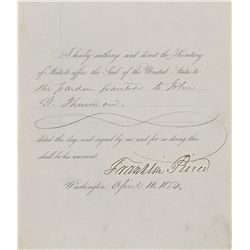 I hereby authorize and direct the Secretary
of State to affix the Seal of the United States to
the pardon granted to John
dated this day and signed by me and for so doing this
shall be his warrant.
Franklin Pierce
Washington April 14, 1854.